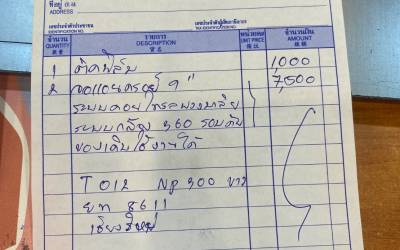 ที่อยู่
住址
ADDRESS
เลขประจำตัวประชาชน
IDENTIFICATION NO.
เลขประจำตัวผู้เสียภาษีอากร
TAX IDENTIFICATION NO.
จำนวน รายการ หน่วยละ จำนวนเงิน
QUANTITY DESCRIPTION UNIT PRICE AMOUNT
数量 货名 单价 银码
1 ติดฟิล์ม 1,000
2 จอแอนดรอย์ 9" 7,500
ระบบจอย
ระบบกล้อง 360 รอบคัน
ของเดิมใช้งานได้
TO12 NP300
ยท 8611
เชียงใหม่